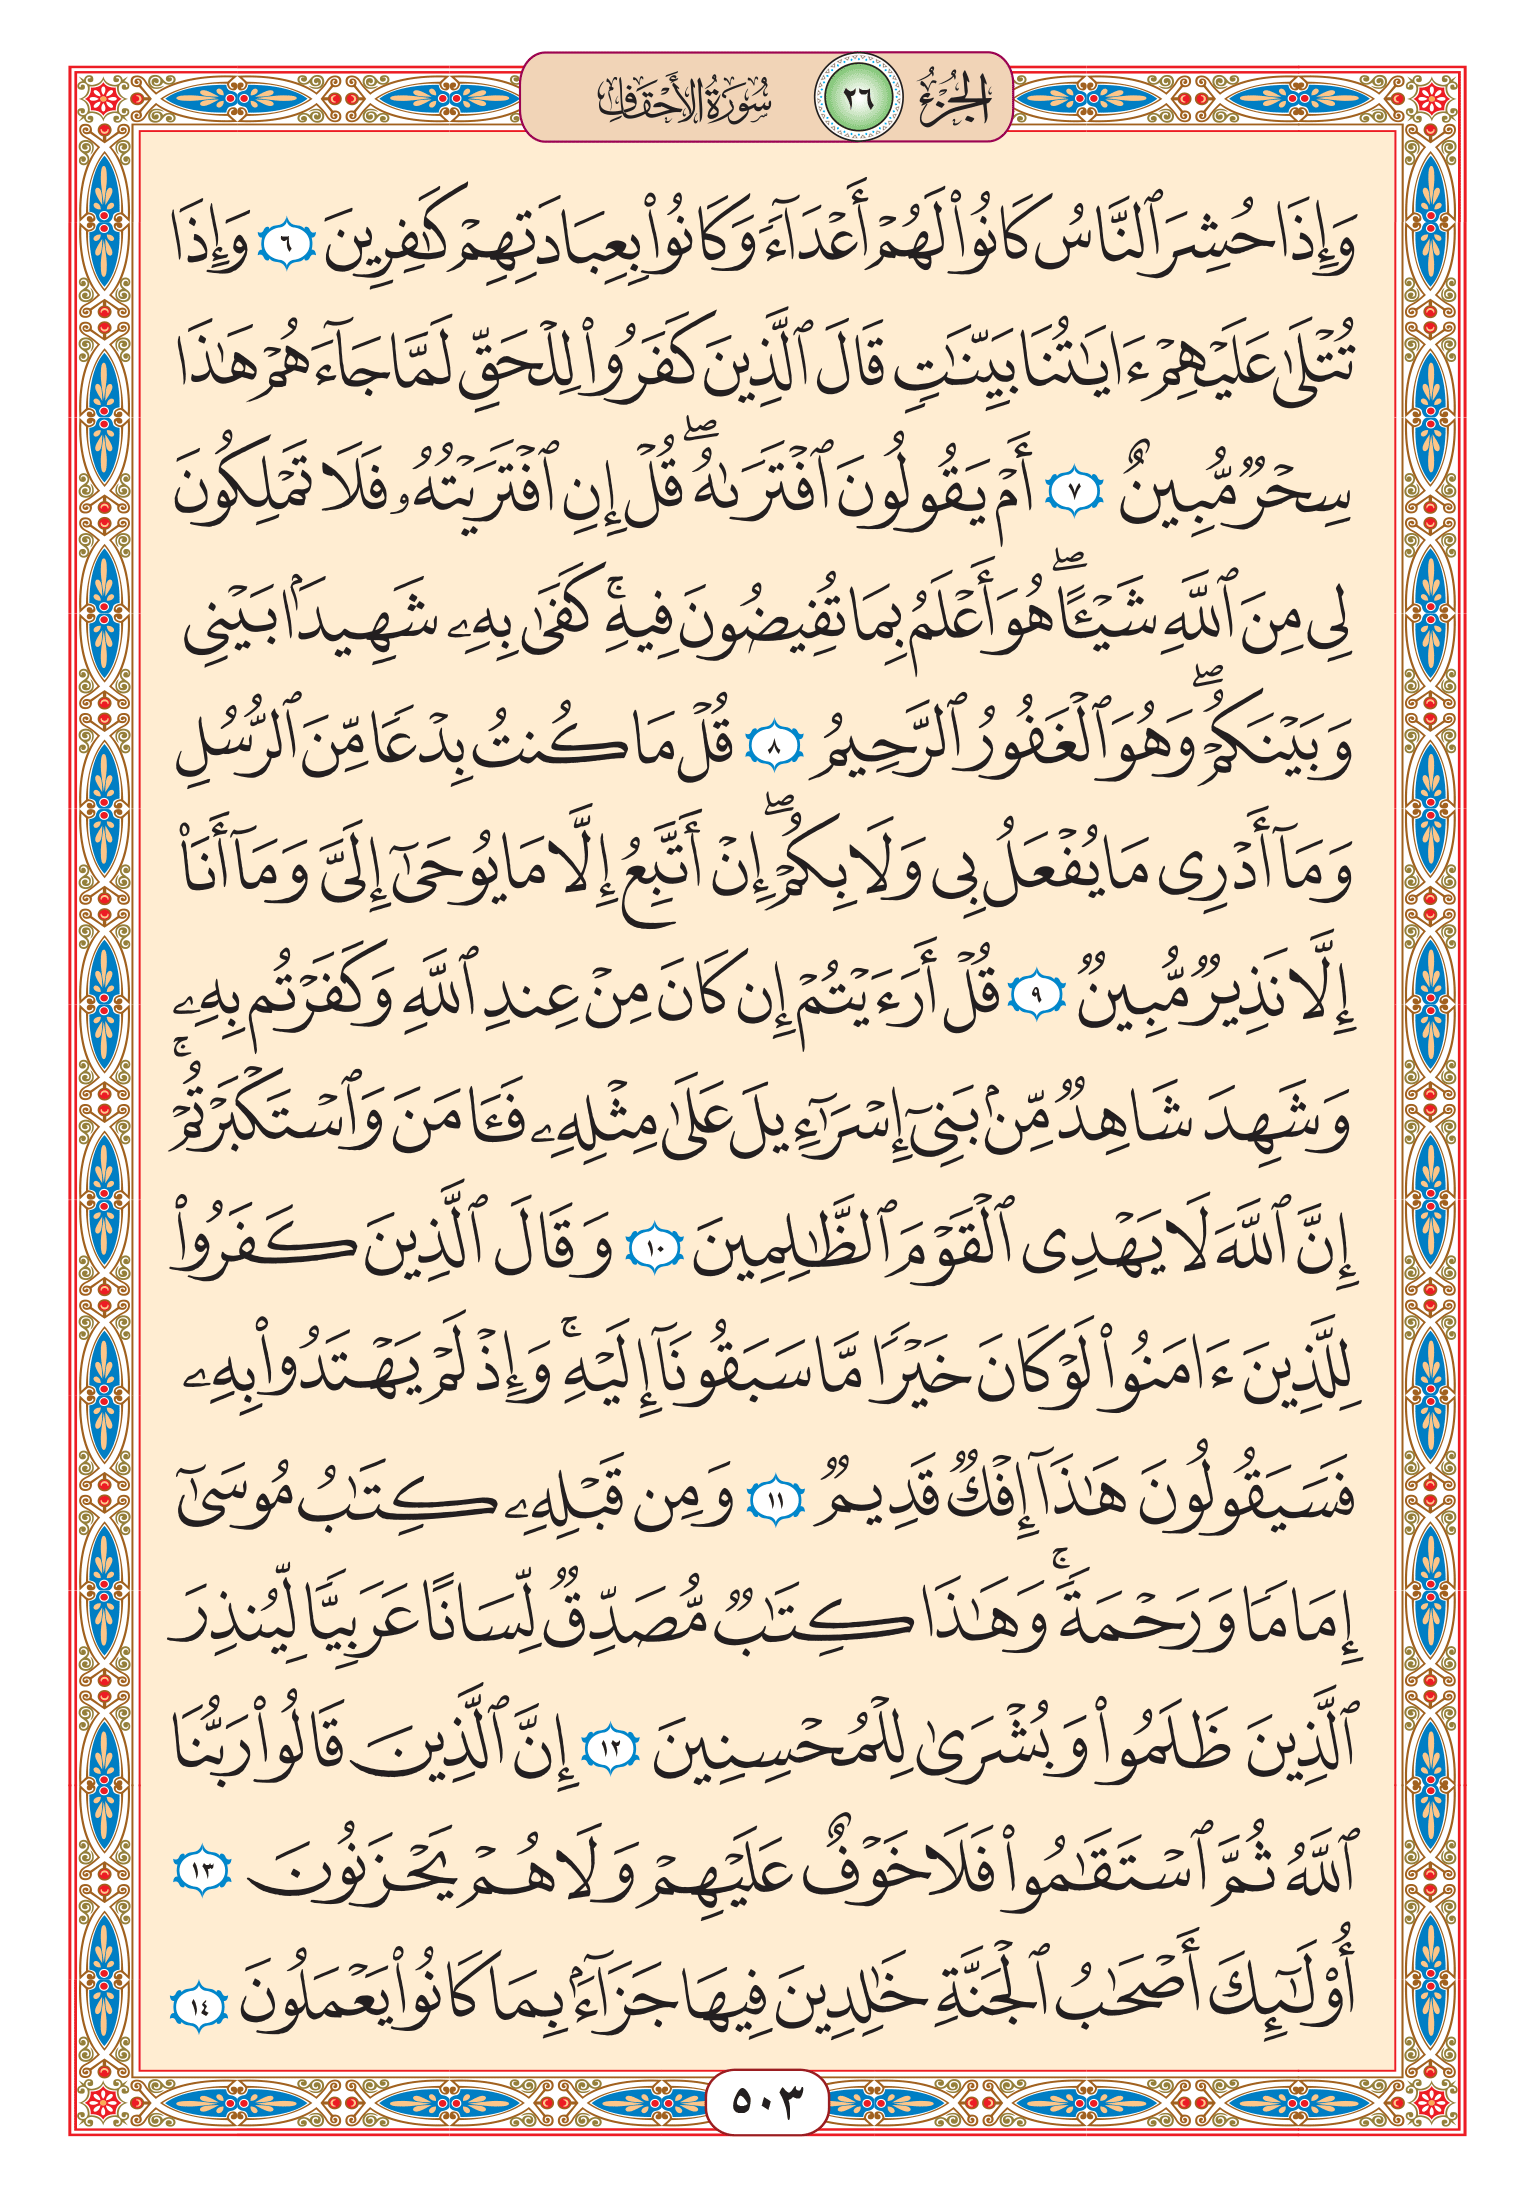 الجزء ٢٦ سورة الأحقاف
وَإِذَا حُشِرَ ٱلنَّاسُ كَانُوا۟ لَهُمْ أَعْدَآءً وَكَانُوا۟ بِعِبَادَتِهِمْ كَٰفِرِينَ ٦ وَإِذَا
تُتْلَىٰ عَلَيْهِمْ ءَايَٰتُنَا بَيِّنَٰتٍ قَالَ ٱلَّذِينَ كَفَرُوا۟ لِلْحَقِّ لَمَّا جَآءَهُمْ هَٰذَا
سِحْرٌ مُّبِينٌ ٧ أَمْ يَقُولُونَ ٱفْتَرَىٰهُ ۖ قُلْ إِنِ ٱفْتَرَيْتُهُۥ فَلَا تَمْلِكُونَ
لِى مِنَ ٱللَّهِ شَيْـًٔا ۖ هُوَ أَعْلَمُ بِمَا تُفِيضُونَ فِيهِ ۚ كَفَىٰ بِهِۦ شَهِيدًۢا بَيْنِى
وَبَيْنَكُمْ ۖ وَهُوَ ٱلْغَفُورُ ٱلرَّحِيمُ ٨ قُلْ مَا كُنتُ بِدْعًا مِّنَ ٱلرُّسُلِ
وَمَآ أَدْرِى مَا يُفْعَلُ بِى وَلَا بِكُمْ ۖ إِنْ أَتَّبِعُ إِلَّا مَا يُوحَىٰٓ إِلَىَّ وَمَآ أَنَا۠
إِلَّا نَذِيرٌ مُّبِينٌ ٩ قُلْ أَرَءَيْتُمْ إِن كَانَ مِنْ عِندِ ٱللَّهِ وَكَفَرْتُم بِهِۦ
وَشَهِدَ شَاهِدٌ مِّنۢ بَنِىٓ إِسْرَٰٓءِيلَ عَلَىٰ مِثْلِهِۦ فَـَٔامَنَ وَٱسْتَكْبَرْتُمْ ۚ
إِنَّ ٱللَّهَ لَا يَهْدِى ٱلْقَوْمَ ٱلظَّٰلِمِينَ ١٠ وَقَالَ ٱلَّذِينَ كَفَرُوا۟
لِلَّذِينَ ءَامَنُوا۟ لَوْ كَانَ خَيْرًا مَّا سَبَقُونَآ إِلَيْهِ ۚ وَإِذْ لَمْ يَهْتَدُوا۟ بِهِۦ
فَسَيَقُولُونَ هَٰذَآ إِفْكٌ قَدِيمٌ ١١ وَمِن قَبْلِهِۦ كِتَٰبُ مُوسَىٰٓ
إِمَامًا وَرَحْمَةً ۚ وَهَٰذَا كِتَٰبٌ مُّصَدِّقٌ لِّسَانًا عَرَبِيًّا لِّيُنذِرَ
ٱلَّذِينَ ظَلَمُوا۟ وَبُشْرَىٰ لِلْمُحْسِنِينَ ١٢ إِنَّ ٱلَّذِينَ قَالُوا۟ رَبُّنَا
ٱللَّهُ ثُمَّ ٱسْتَقَٰمُوا۟ فَلَا خَوْفٌ عَلَيْهِمْ وَلَا هُمْ يَحْزَنُونَ ١٣
أُو۟لَٰٓئِكَ أَصْحَٰبُ ٱلْجَنَّةِ خَٰلِدِينَ فِيهَا جَزَآءًۢ بِمَا كَانُوا۟ يَعْمَلُونَ ١٤
٥٠٣